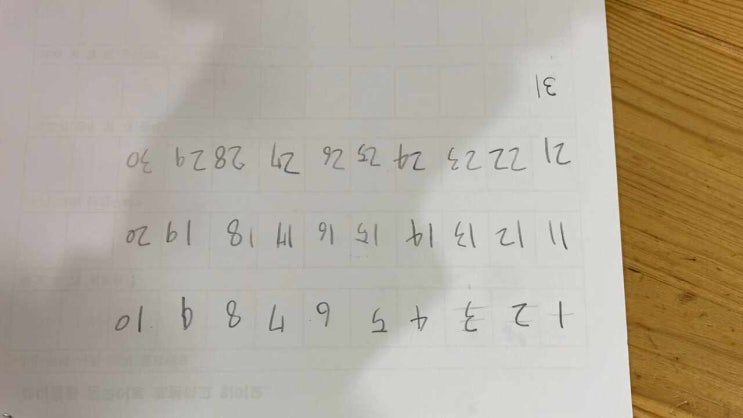 1 2 3 4 5 6 7 8 9 10
11 12 13 14 15 16 17 18 19 20
21 22 23 24 25 26 27 28 29 30
31